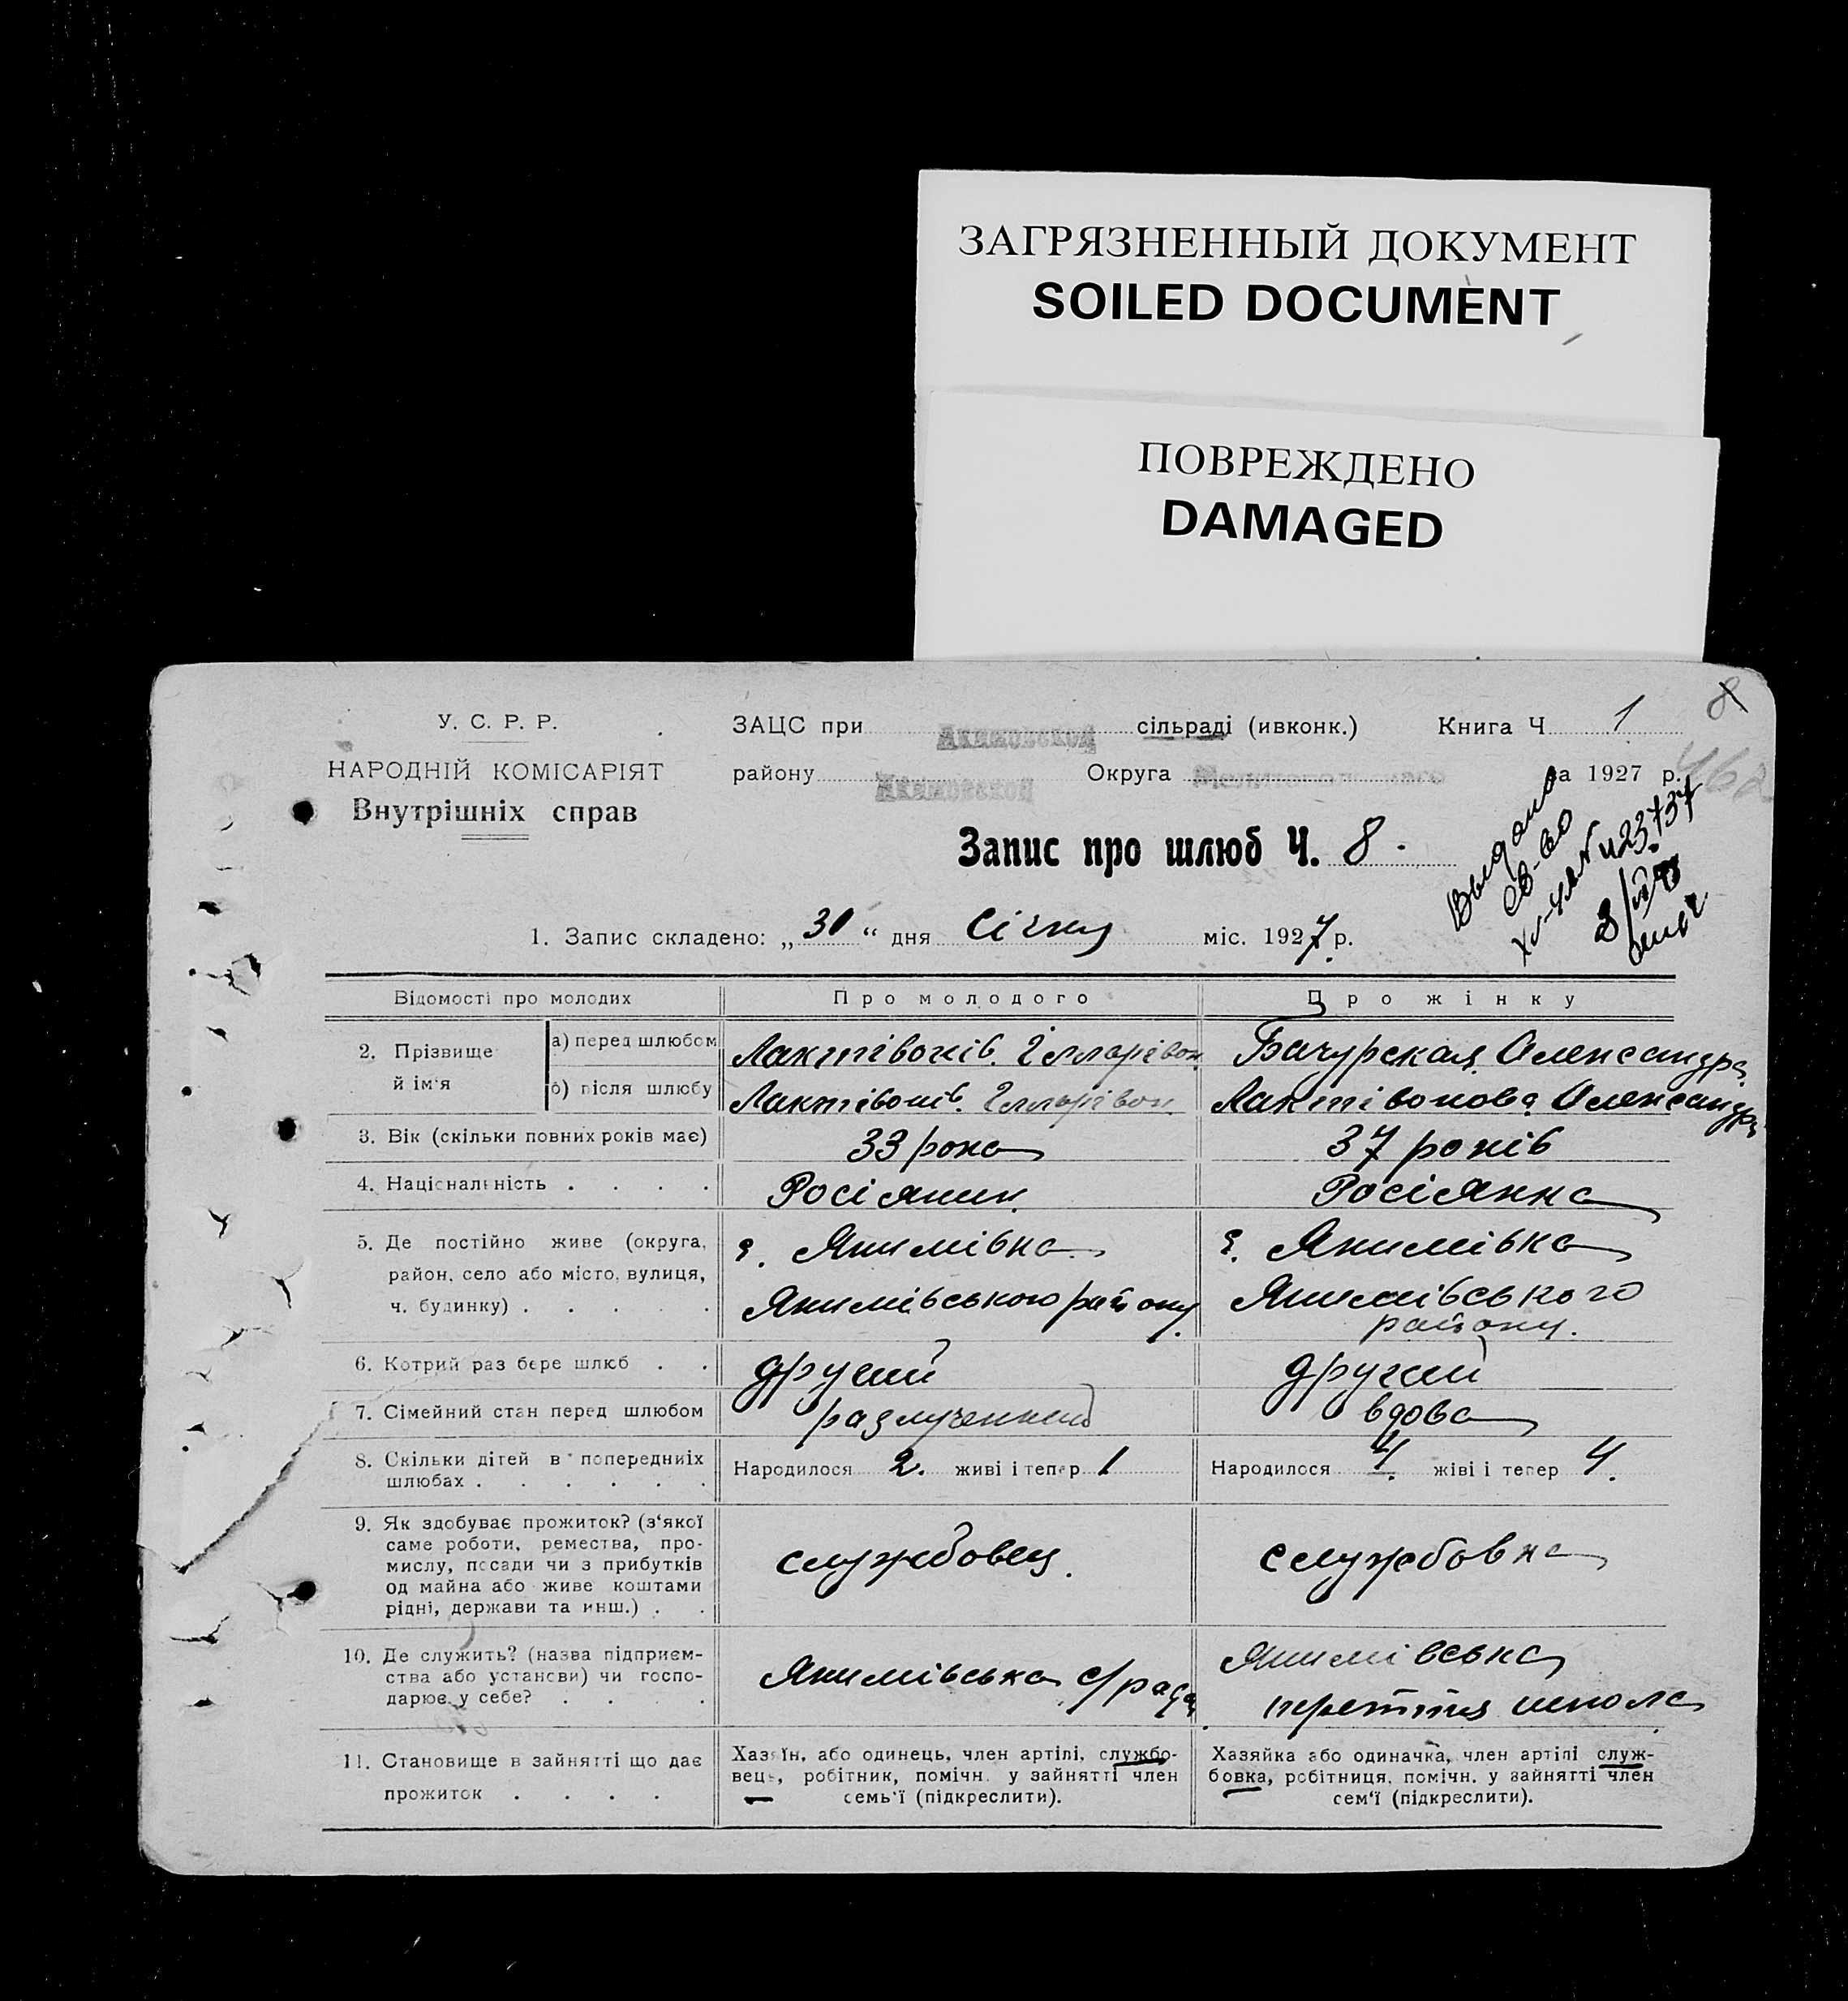 ЗАГРЯЗНЕННЫЙ ДОКУМЕНТ
SOILED DOCUMENT
ПОВРЕЖДЕНО
DAMAGED
8
У. С. Р. Р.
НАРОДНІЙ КОМІСАРІЯТ
Внутрішніх справ
ЗАЦС при Акимовской сільраді (ивконк.) Книга Ч 1
району Акимовской Округа Мелитопольского за 1927 р.
462
Запис про шлюб Ч. 8.
Выдано
св-во
1. Запис складено: „30“ дня Січня міс. 1927 р.
Відомості про молодих
Про молодого
Про жінку
2. Прізвище й ім'я
а) перед шлюбом
Лактівонів Ілларівон
Бачурская Александра
б) після шлюбу
Лактівонів. Ілларівон
Лактівонова Александра
3. Вік (скільки повних років має)
33 рока
37 років
4. Національність . . . .
Росіянин
Росіянка
5. Де постійно живе (округа,
район, село або місто, вулиця,
ч. будинку) . . . . .
с. Якимівка
Якимівського району.
с. Якимівка
Якимівського
району.
6. Котрий раз бере шлюб . .
другий
другий
7. Сімейний стан перед шлюбом
разлученний
вдова
8. Скільки дітей в попередниіх
шлюбах . . . . . .
Народилося 2. живі і тепер 1
Народилося 4. жіві і тепер 4.
9. Як здобуває прожиток? (з'якої
саме роботи, ремества, про-
мислу, посади чи з прибутків
од майна або живе коштами
рідні, держави та инш.) . .
службовец.
службовка
10. Де служить? (назва підприєм-
ства або установи) чи госпо-
дарює у себе? . . . .
Якимівська с/рада
Якимівська
третя школа
11. Становище в зайнятті що дає
прожиток . . . .
Хазяїн, або одинець, член артілі, службо-
вець, робітник, помічн. у зайнятті член
семь'ї (підкреслити).
Хазяйка або одиначка, член артілі служ-
бовка, робітниця, помічн. у зайнятті член
сем'ї (підкреслити).